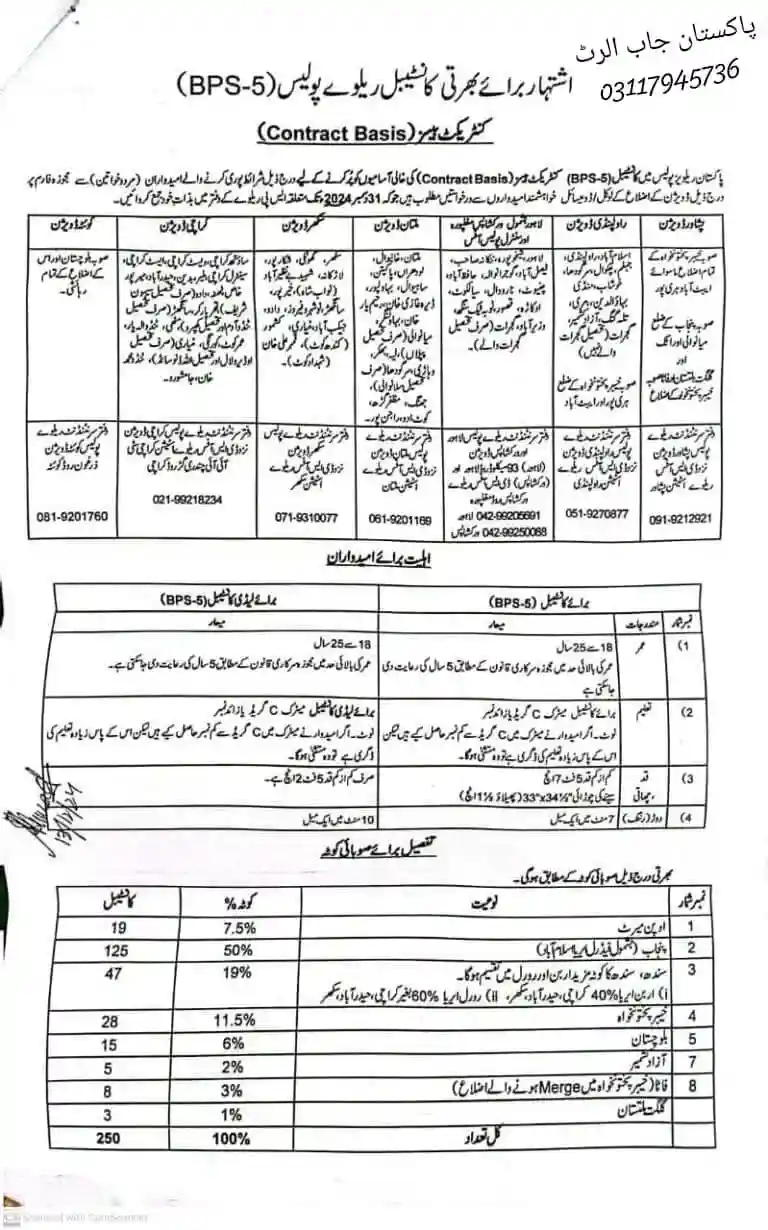 پاکستان جاب الرٹ
03117945736
اشتہار برائے بھرتی کانسٹیبل ریلوے پولیس (BPS-5)
کنٹریکٹ بیسز (Contract Basis)
پاکستان ریلویز پولیس میں کانسٹیبل (BPS-5) کنٹریکٹ بیسز (Contract Basis) کی خالی آسامیوں کو پُر کرنے کے لیے درج ذیل شرائط پوری کرنے والے امیدواران (مرد و خواتین) سے مجوزہ فارم پر
درج ذیل ڈویژن کے اضلاع کے لوکل / ڈومیسائل خواہشمند امیدواروں سے درخواستیں مطلوب ہیں جو کہ 31 دسمبر 2024 تک متعلقہ ایس پی ریلوے کے دفتر میں بذات خود جمع کروائیں۔
پشاور ڈویژن
راولپنڈی ڈویژن
لاہور بشمول ورکشاپس مغلپورہ اور سنٹرل پولیس آفس
ملتان ڈویژن
سکھر ڈویژن
کراچی ڈویژن
کوئٹہ ڈویژن
صوبہ خیبر پختونخواہ کے
تمام اضلاع ماسوائے
ایبٹ آباد ہری پور
صوبہ پنجاب کے ضلع
میانوالی اور اٹک
اور
گلگت بلتستان
خیبر پختونخواہ کے اضلاع
اسلام آباد، راولپنڈی،
جہلم، چکوال، سرگودھا،
خوشاب، منڈی
بہاؤالدین،
تلہ گنگ، آزاد کشمیر،
گجرات (تحصیل گجرات
والے نہیں)
صوبہ خیبر پختونخواہ کے ضلع
ہری پور اور ایبٹ آباد
لاہور، شیخوپورہ، ننکانہ صاحب،
فیصل آباد، گوجرانوالہ، حافظ آباد،
چنیوٹ، نارووال، سیالکوٹ،
اوکاڑہ، قصور، ٹوبہ ٹیک سنگھ،
وزیر آباد، گجرات (صرف تحصیل
گجرات والے)۔
ملتان، خانیوال،
لودھراں، پاکپتن،
ساہیوال، بہاولپور،
ڈیرہ غازی خان، رحیم یار
خان، بہاولنگر،
میانوالی (صرف تحصیل
پپلاں)، لیہ، بھکر،
وہاڑی، سرگودھا (صرف
تحصیل سلانوالی)،
جھنگ، مظفر گڑھ،
کوٹ ادو، راجن پور۔
سکھر، گھوٹکی، شکار پور،
لاڑکانہ، شہید بے نظیر آباد
(نواب شاہ)، خیر پور،
سانگھڑ، نوشہرو فیروز، دادو،
جیکب آباد، کشمور
(کندھ کوٹ)، قمبر علی خان
(شہدادکوٹ)۔
صوبہ بلوچستان اور اس
کے اضلاع کے تمام
رہائشی۔
دفتر سپرنٹنڈنٹ ریلوے
پولیس پشاور ڈویژن
نزد ڈی ایس آفس
ریلوے اسٹیشن پشاور
091-9212921
دفتر سپرنٹنڈنٹ ریلوے
پولیس راولپنڈی ڈویژن
نزد ڈی ایس آفس ریلوے
اسٹیشن راولپنڈی
051-9270877
دفتر سپرنٹنڈنٹ ریلوے پولیس لاہور
اور ورکشاپس ڈویژن
(لاہور) 93 میکلوڈ روڈ لاہور اور
(ورکشاپس) ڈی ایس آفس ریلوے
ورکشاپس روڈ مغلپورہ
042-99205691 لاہور
042-99250088 ورکشاپس
دفتر سپرنٹنڈنٹ ریلوے
پولیس ملتان ڈویژن
نزد ڈی ایس آفس ریلوے
اسٹیشن ملتان
061-9201169
دفتر سپرنٹنڈنٹ ریلوے پولیس
سکھر ڈویژن
نزد ڈی ایس آفس ریلوے
اسٹیشن سکھر
071-9310077
دفتر سپرنٹنڈنٹ ریلوے پولیس کراچی ڈویژن
نزد ڈی ایس آفس ریلوے اسٹیشن کراچی آئی
آئی چندریگر روڈ کراچی
021-99218234
دفتر سپرنٹنڈنٹ ریلوے
پولیس کوئٹہ ڈویژن
زرغون روڈ کوئٹہ
081-9201760
اہلیت برائے امیدواران
برائے کانسٹیبل (BPS-5) برائے لیڈی کانسٹیبل (BPS-5)
نمبر شمار مندرجات معیار معیار
1) عمر
18 سے 25 سال
عمر کی بالائی حد میں مجوزہ سرکاری قانون کے مطابق 5 سال کی رعایت دی
جا سکتی ہے
18 سے 25 سال
عمر کی بالائی حد میں مجوزہ سرکاری قانون کے مطابق 5 سال کی رعایت دی جا سکتی ہے۔
2) تعلیم
برائے کانسٹیبل میٹرک C گریڈ یا زائد نمبر
نوٹ۔ اگر امیدوار نے میٹرک میں C گریڈ سے کم نمبر حاصل کیے ہیں لیکن
اس کے پاس زیادہ تعلیم کی ڈگری ہے تو وہ مستثنیٰ ہو گا۔
برائے لیڈی کانسٹیبل میٹرک C گریڈ یا زائد نمبر
نوٹ۔ اگر امیدوار نے میٹرک میں C گریڈ سے کم نمبر حاصل کیے ہیں لیکن اس کے پاس زیادہ تعلیم کی
ڈگری ہے تو وہ مستثنیٰ ہو گا۔
3) قد
چھاتی
کم از کم قد 5 فٹ 7 انچ
سینے کی چوڑائی 33"x34½" (پھیلاؤ 1½ انچ)
صرف کم از کم قد 5 فٹ 2 انچ ہے۔
4) دوڑ (رننگ) 7 منٹ میں ایک میل 10 منٹ میں ایک میل
تفصیل برائے صوبائی کوٹہ
بھرتی درج ذیل صوبائی کوٹہ کے مطابق ہو گی۔
نمبر شمار نوعیت کوٹہ % کانسٹیبل
1 اوپن میرٹ 7.5% 19
2 پنجاب (بشمول فیڈرل ایریا اسلام آباد) 50% 125
3 سندھ، سندھ کا کوٹہ مزید اربن اور رورل میں تقسیم ہو گا۔ 19% 47
i) اربن ایریا 40% کراچی، حیدر آباد، سکھر، ii) رورل ایریا 60% بغیر کراچی، حیدر آباد، سکھر
4 خیبر پختونخواہ 11.5% 28
5 بلوچستان 6% 15
7 آزاد کشمیر 2% 5
8 فاٹا (خیبر پختونخواہ میں Merge ہونے والے اضلاع) 3% 8
گلگت بلتستان 1% 3
کل تعداد 100% 250
13/12/24
CS Scanned with CamScanner